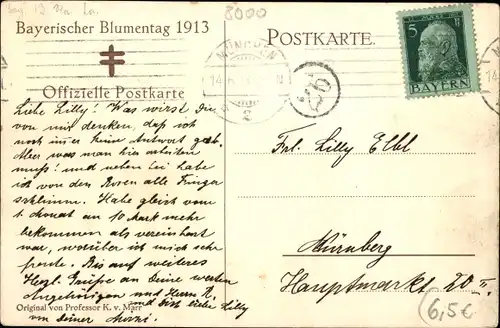 8000
Bayerischer Blumentag 1913
Offizielle Postkarte
POSTKARTE.
MÜNCHEN
2
5
BAYERN
26
Liebe Lilly! Was wirst Du
von mir denken, daß ich
noch immer keine Antwort gab.
Aber was man hier arbeiten
muß! und neben bei habe
ich von den Rosen alle Finger
schlimm. Habe gleich vom
1. Monat an 10 Mark mehr
bekommen als vereinbart
war, worüber ich mich sehr
freute. Bis auf weiteres
Herzl. Grüße an Deine werten
Angehörigen und Herrn K.
und Dich liebe Lilly
von Deiner
Original von Professor K. v. Marr
Frl. Lilly Elbl
Nürnberg
Hauptmarkt 20 II.
6,5€